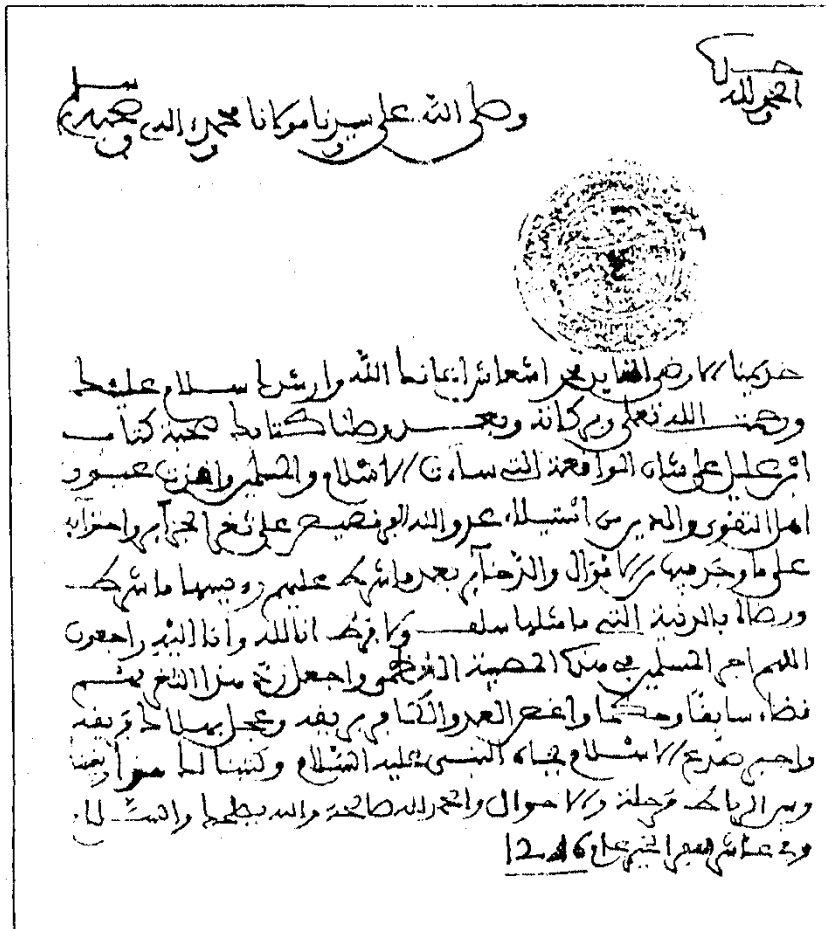 الحمد لله وحده
وصلى الله على سيدنا ومولانا محمد وءاله وصحبه وسلم
خديمنا الارضى القايد محمد اشعاش اعانك الله وارشدك سلام عليك
ورحمت الله تعلى وبركاته وبعد وصلنا كتابك صحبة كتاب
ابن عليل على شان الواقعة التي ساءت الاسلام والمسلمين عيون
اهل التقوى والدين من استيلاء عدو الله الفرنصيص على ثغر الجزائر واحتوائه
على ما وجد فيها من الاموال والذخائر بعد ما شرط عليهم رءيسها ما شرط
ورضاه بالدنية التي ما مثلها سلف ولا فرط انا لله وانا اليه راجعون
اللهم اجر المسلمين في هذه المصيبة العظمى واجعل هذا الثغر
قضاء سابقا وحكما واغصص العدو الكافر بريقه وعجل بهلاكه وتفريقه
واجبر صدع الاسلام بجاه النبي عليه السلام وكتبنا لك هذا وبيننا
وبين الرباط مرحلة والاحوال والحمد لله صالحة والله يصلحك والسلام
في عاشر صفر الخير عام 1246